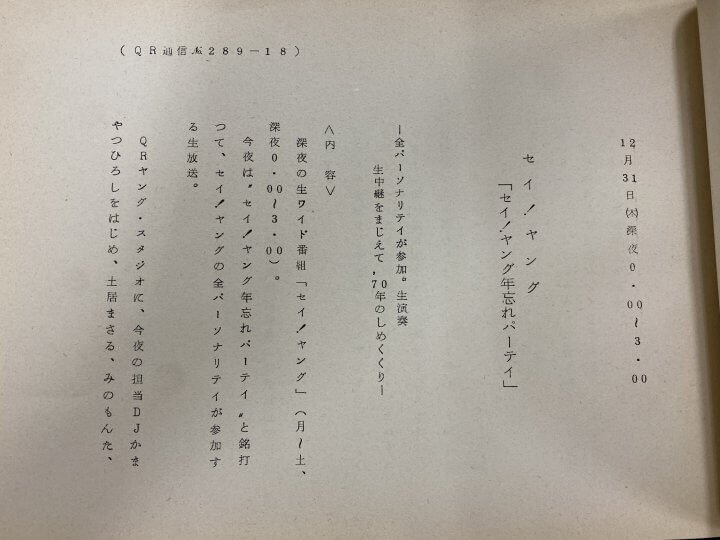 12月31日㈭深夜0・00〜3・00
セイ!ヤング
「セイ!ヤング年忘れパーテイ」
―全パーソナリテイが参加。生演奏
生中継をまじえて、'70年のしめくくり―
＜内容＞
深夜の生ワイド番組「セイ!ヤング」（月〜土、
深夜0・00〜3・00）。
今夜は〝セイ!ヤング年忘れパーテイ〟と銘打
つて、セイ!ヤングの全パーソナリテイが参加す
る生放送。
QRヤング・スタジオに、今夜の担当DJかま
やつひろしをはじめ、土居まさる、みのもんた、
（QR通信№289－18）